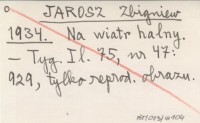 JAROSZ Zbigniew
1934. Na wiatr halny.
– Tyg. Il. 75, nr 47:
929, tylko reprod. obrazu.